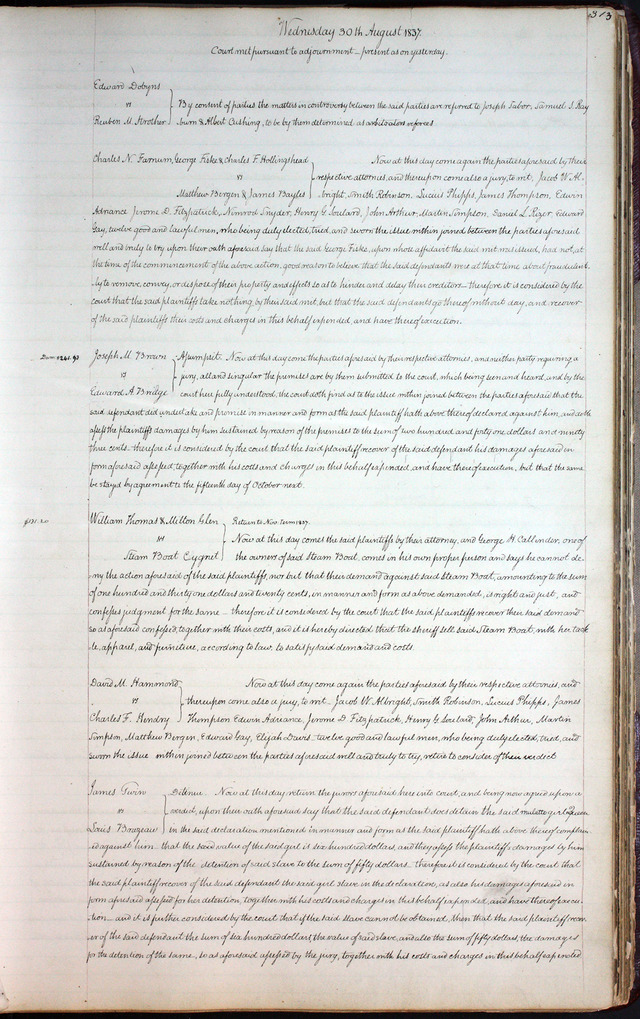 313
Wednesday 30th August 1837.
Court met pursuant to adjournment – present as on yesterday.
Edward Dobyns
vs
Reuben M. Strother
By consent of parties the matters in controversy between the said parties are referred to Joseph Tabor, Samuel S. Ray
burn & Albert Cushing, to be by them determined as arbitrators referees
Charles N. Farnum, George Fiske & Charles F. Hollingshead
vs
Matthew Bergen & James Bayles
Now at this day come again the parties aforesaid by their
respective attornies, and thereupon come also a jury, to wit, Jacob W. Al
bright, Smith Robinson, Lucius Phipps, James Thompson, Edwin
Adriance Jerome D. Fitzpatrick, Nimrod Snyder, Henry G. Soulard, John Arthur, Martin Simpson, Daniel L. Edward
Gay, twelve good and lawful men, who being duly elected, tried, and sworn the issue within joined between the parties aforesaid
well and truly to try upon their oath aforesaid say that the said George Fiske, upon whose affidavit the said writ was issued, had not, at
the time of the commencement of the above action, good reason to believe that the said defendants were at that time about fraudulent
ly to remove convey, or dispose of their property and effects so as to hinder and delay their creditors – therefore it is considered by the
court that the said plaintiffs take nothing by their said writ, but that the said defendants go thereof without day, and recover
of the said plaintiffs their costs and charges in this behalf expended, and have thereof execution.
Dam: $241.93
Joseph M. Brown
vs
Edward A. Bridge
Assumpsit. Now at this day come the parties aforesaid by their respective attornies, and neither party requiring a
jury, all and singular the premises are by them submitted to the court, which being seen and heard, and by the
court here fully understood, the court doth find as to the issue within joined between the parties aforesaid that the
said defendant did undertake and promise in manner and form as the said plaintiff hath above thereof declared against him, and doth
assess the plaintiffs damages by him sustained by reason of the premises to the sum of two hundred and forty one dollars and ninety
three cents – therefore it is considered by the court that the said plaintiff recover of the said defendant his damages aforesaid in
form aforesaid assessed, together with his costs and charges in this behalf expended, and have thereof execution, but that the same
be stayed by agreement to the fifteenth day of October next.
$131.20
William Thomas & Milton Glen
vs
Steam Boat Cygnet
Return to Nov. term 1837.
Now at this day comes the said plaintiffs by their attorney, and George H. Callender, one of
the owners of said Steam Boat, comes in his own proper person and says he cannot de
ny the action aforesaid of the said plaintiffs, nor but that their demand against said Steam Boat, amounting to the sum
of one hundred and thirty one dollars and twenty cents, in manner and form as above demanded, is right and just, and
confesses judgment for the same – therefore it is considered by the court that the said plaintiffs recover their said demand
so as aforesaid confessed, together with their costs, and it is hereby directed that the sheriff sell said Steam Boat, with her tack
le, apparel, and furniture, according to law, to satisfy said demand and costs.
David M. Hammond
vs
Charles F. Hendry
Now at this day come again the parties aforesaid by their respective attornies, and
thereupon come also a jury, to wit – Jacob W. Albright, Smith Robinson, Lucius Phipps, James
Thompson Edwin Adriance, Jerome D. Fitzpatrick, Henry G. Soulard, John Arthur, Martin
Simpson, Matthew Bergen, Edward Gay, Elijah Davis – twelve good and lawful men, who being duly elected, tried, and
sworn the issue within joined between the parties aforesaid well and truly to try, retire to consider of their verdict
James
vs
Louis Brazeau
Detinue. Now at this day return the jurors aforesaid here into court, and being now agreed upon a
verdict, upon their oath aforesaid say that the said defendant does detain the said mulatto girl
in the said declaration mentioned in manner and form as the said plaintiff hath above thereof complain
ed against him – that the said value of the said girl is six hundred dollars, and they assess the plaintiffs damages by him
sustained by reason of the detention of said slave to the sum of fifty dollars – therefore it is considered by the court that
the said plaintiff recover of the said defendant the said girl slave in the declaration, as also his damages aforesaid in
form aforesaid assessed for her detention, together with his costs and charges in this behalf expended, and have thereof execu
tion – and it is further considered by the court that if the said slave cannot be obtained, then that the said plaintiff recov
er of the said defendant the sum of six hundred dollars, the value of said slave, and also the sum of fifty dollars, the damages
for the detention of the same, so as aforesaid assessed by the jury, together with his costs and charges in this behalf expended